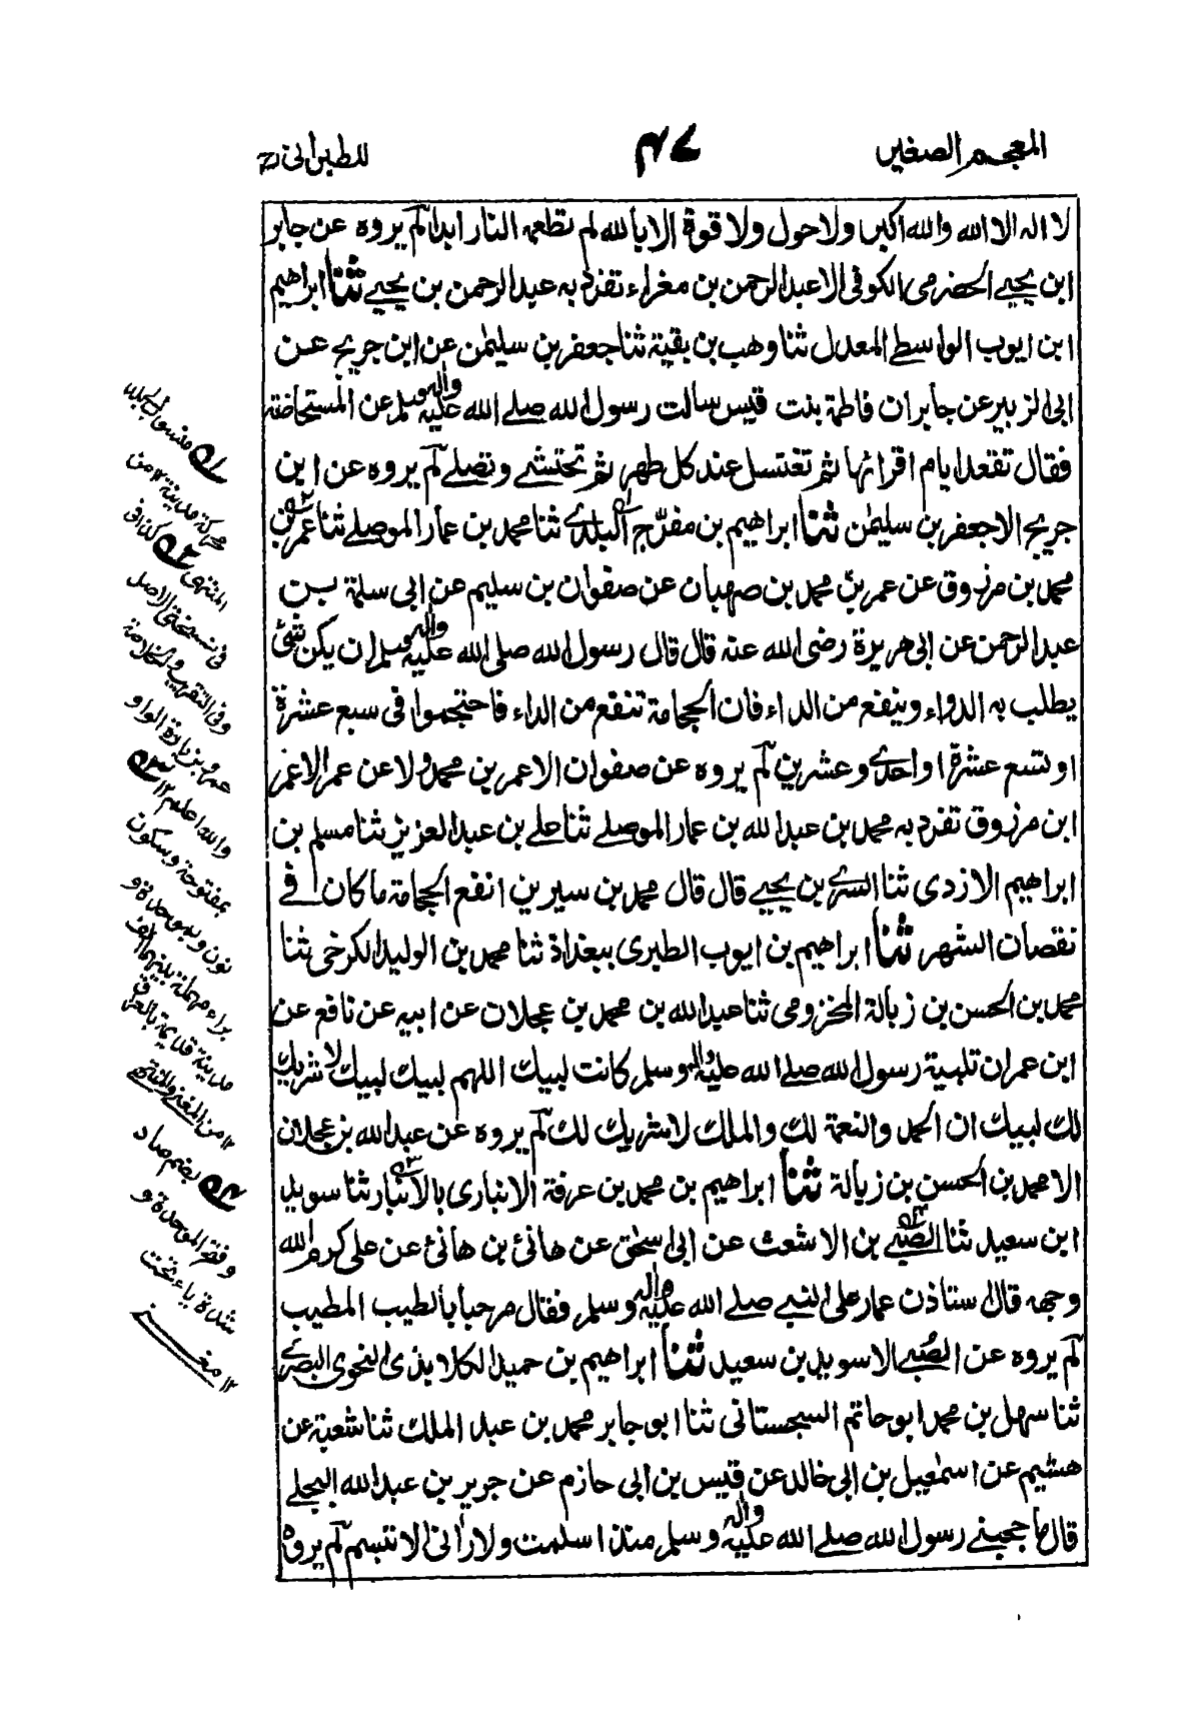 المعجم الصغير
٤٧
للطبرانى ج
لا اله الا الله والله اكبر ولا حول ولا قوة الا بالله لم تطعمه النار ابدا لم يروه عن جابر
ابن يحيى الحضرمى الكوفى الا عبد الرحمن بن مغراء تفرد به عبد الرحمن بن يحيى ثنا ابراهيم
ابن ايوب الواسطے المعدل ثنا وهب بن بقية ثنا جعفر بن سليمٰن عن ابن جريج عن
ابى الزبير عن جابر ان فاطمة بنت قيس سالت رسول الله صلے الله عليه واله وسلم عن المستحاضة
فقال تقعد ايام اقرائها ثم تغتسل عند كل طهر ثم تحتشے وتصلے لم يروه عن ابن
جريج الا جعفر بن سليمٰن ثنا ابراهيم بن مفرّج البلدے ثنا محمد بن عمار الموصلے ثنا عمر بن
محمد بن مرزوق عن عمر بن محمد بن صهبان عن صفوان بن سليم عن ابى سلمة بن
عبد الرحمن عن ابى هريرة رضى الله عنه قال قال رسول الله صلى الله عليه واله وسلم ان يكن شئ
يطلب به الدواء وينفع من الداء فان الحجامة تنفع من الداء فاحتجموا فى سبع عشرة
او تسع عشرة او احدے وعشرين لم يروه عن صفوان الا عمر بن محمد ولا عن عمر الا عمر
ابن مرزوق تفرد به محمد بن عبد الله بن عمار الموصلے ثنا علے بن عبد العزيز ثنا مسلم بن
ابراهيم الازدى ثنا السرے بن يحيى قال قال محمد بن سيرين انفع الحجامة ما كان فے
نقصان الشهر ثنا ابراهيم بن ايوب الطبرى ببغداذ ثنا محمد بن الوليد الكرخى ثنا
محمد بن الحسن بن زبالة المخزومى ثنا عبد الله بن محمد بن عجلان عن ابيه عن نافع عن
ابن عمر ان تلبية رسول الله صلے الله عليه واله وسلم كانت لبيك اللهم لبيك لبيك لا شريك
لك لبيك ان الحمد والنعمة لك والملك لا شريك لك لم يروه عن عبد الله بن عجلان
الا محمد بن الحسن بن زبالة ثنا ابراهيم بن محمد بن عرفة الانبارى بالانبار ثنا سويد
ابن سعيد ثنا الصُبَے بن الاشعث عن ابى اسحٰق عن هانئ بن هانئ عن على كرم الله
وجهه قال استاذن عمار على النبے صلے الله عليه واله وسلم فقال مرحبا بالطيب المطيب
لم يروه عن الصُبَے الا سويد بن سعيد ثنا ابراهيم بن حميد الكلابذى النحوى البصرے
ثنا سهل بن محمد ابو حاتم السجستانى ثنا ابو جابر محمد بن عبد الملك ثنا شعبة عن
هشيم عن اسمٰعيل بن ابى خالد عن قيس بن ابى حازم عن جرير بن عبد الله البجلے
قال ما حجبنے رسول الله صلے الله عليه واله وسلم منذ اسلمت ولا رآنى الا تبسم لم يروه
منسوب الى بلد
محركة مدينة ٢ من
المنتهى كذا فى
فى نسخة الاصل
وفى التقريب والخلاصة
عمرو بزيادة الواو
والله اعلم ١٢
بمفتوحة وسكون
نون وبموحدة و
براء مهملة بينهما الف
مدينة قديمة بالعراق
١٢ من المغنے والمنتهے
بضم صاد
وفتح الموحدة و
شدة ياء تحت
١٢ مغنے